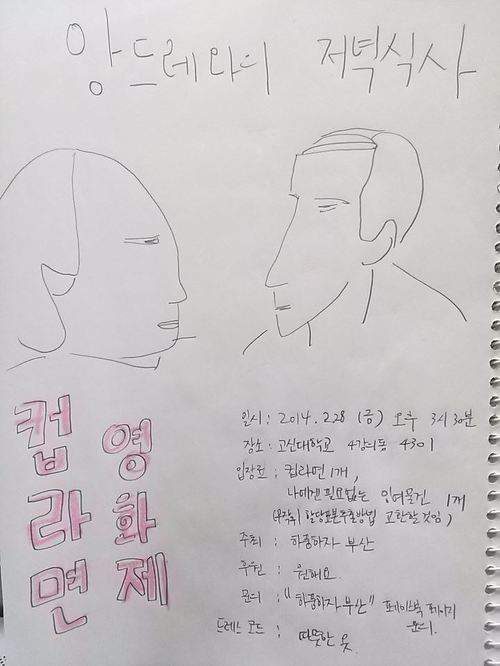 앙드레와의 저녁식사
컵라면
영화제
일시 : 2014. 2.28 (금) 오후 3시 30분
장소 : 고신대학교 4강의동 4301
입장료 : 컵라면 1개,
나에겐 필요없는 잉여물건 1개
교환할 것임,
주최 : 하품하자 부산
후원 : 원해요
문의 : "하품하자 부산" 페이스북 페이지
문의.
드레스 코드 : 따뜻한 옷